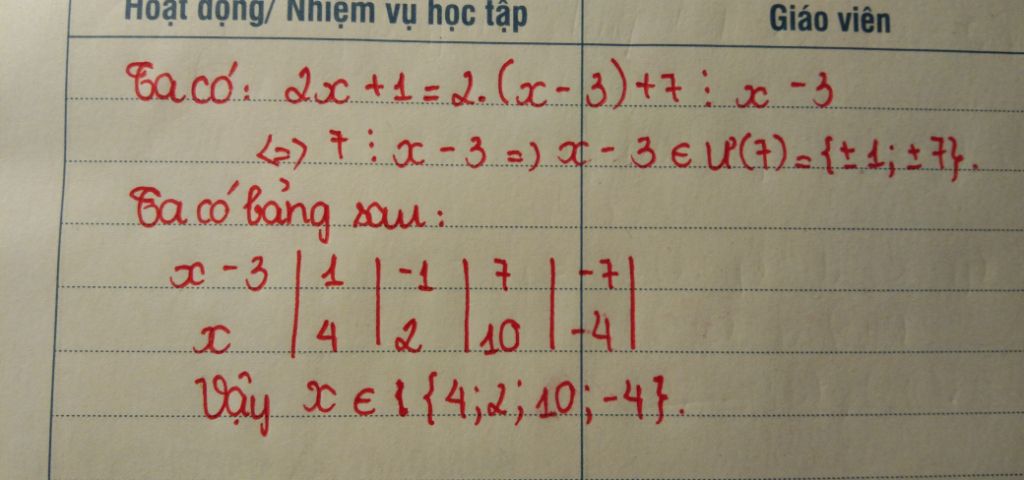 Hoạt động/ Nhiệm vụ học tập Giáo viên
Ta có: 2x + 1 = 2.(x - 3) + 7 ⋮ x - 3
<=> 7 ⋮ x - 3 => x - 3 ∈ Ư(7) = {± 1; ± 7}.
Ta có bảng sau:
x - 3 | 1 | -1 | 7 | -7 |
x | 4 | 2 | 10 | -4 |
Vậy x ∈ { {4; 2; 10; -4}.